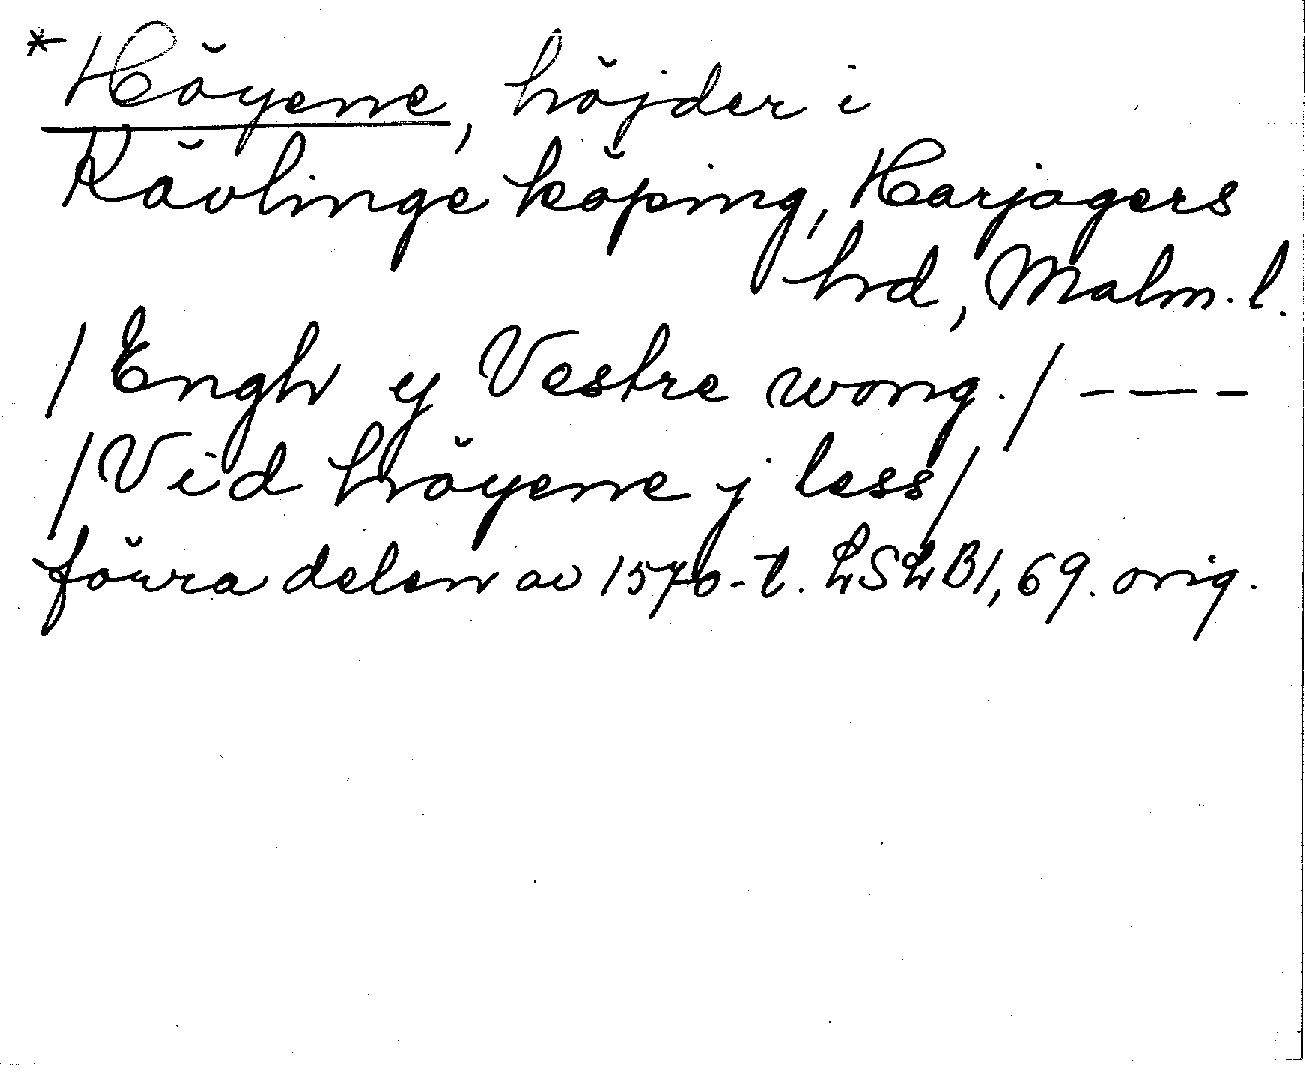 *Höyene, höjder i
Kävlinge köping, Harjagers
hrd, Malm. l.
/Engh ey Vestre wong./ – — –
/Vid höyene j less/
förra delen av 1570-t. LSLB1, 69. orig.